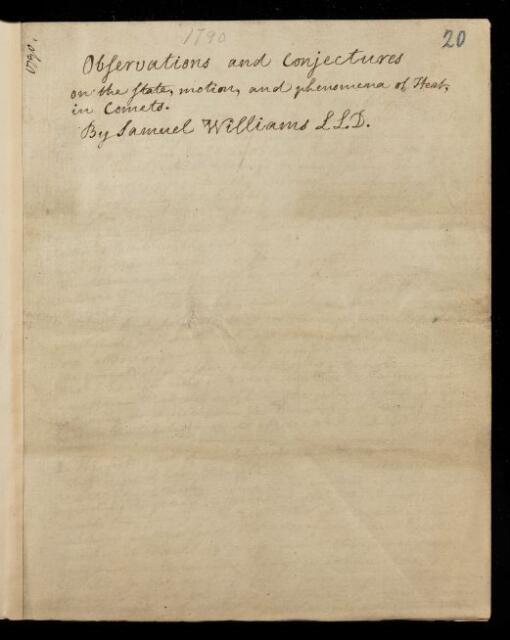 1790
20
1790.
Observations and Conjectures
on the state, motion, and phenomena of Heat,
in Comets.
By Samuel Williams LLD.